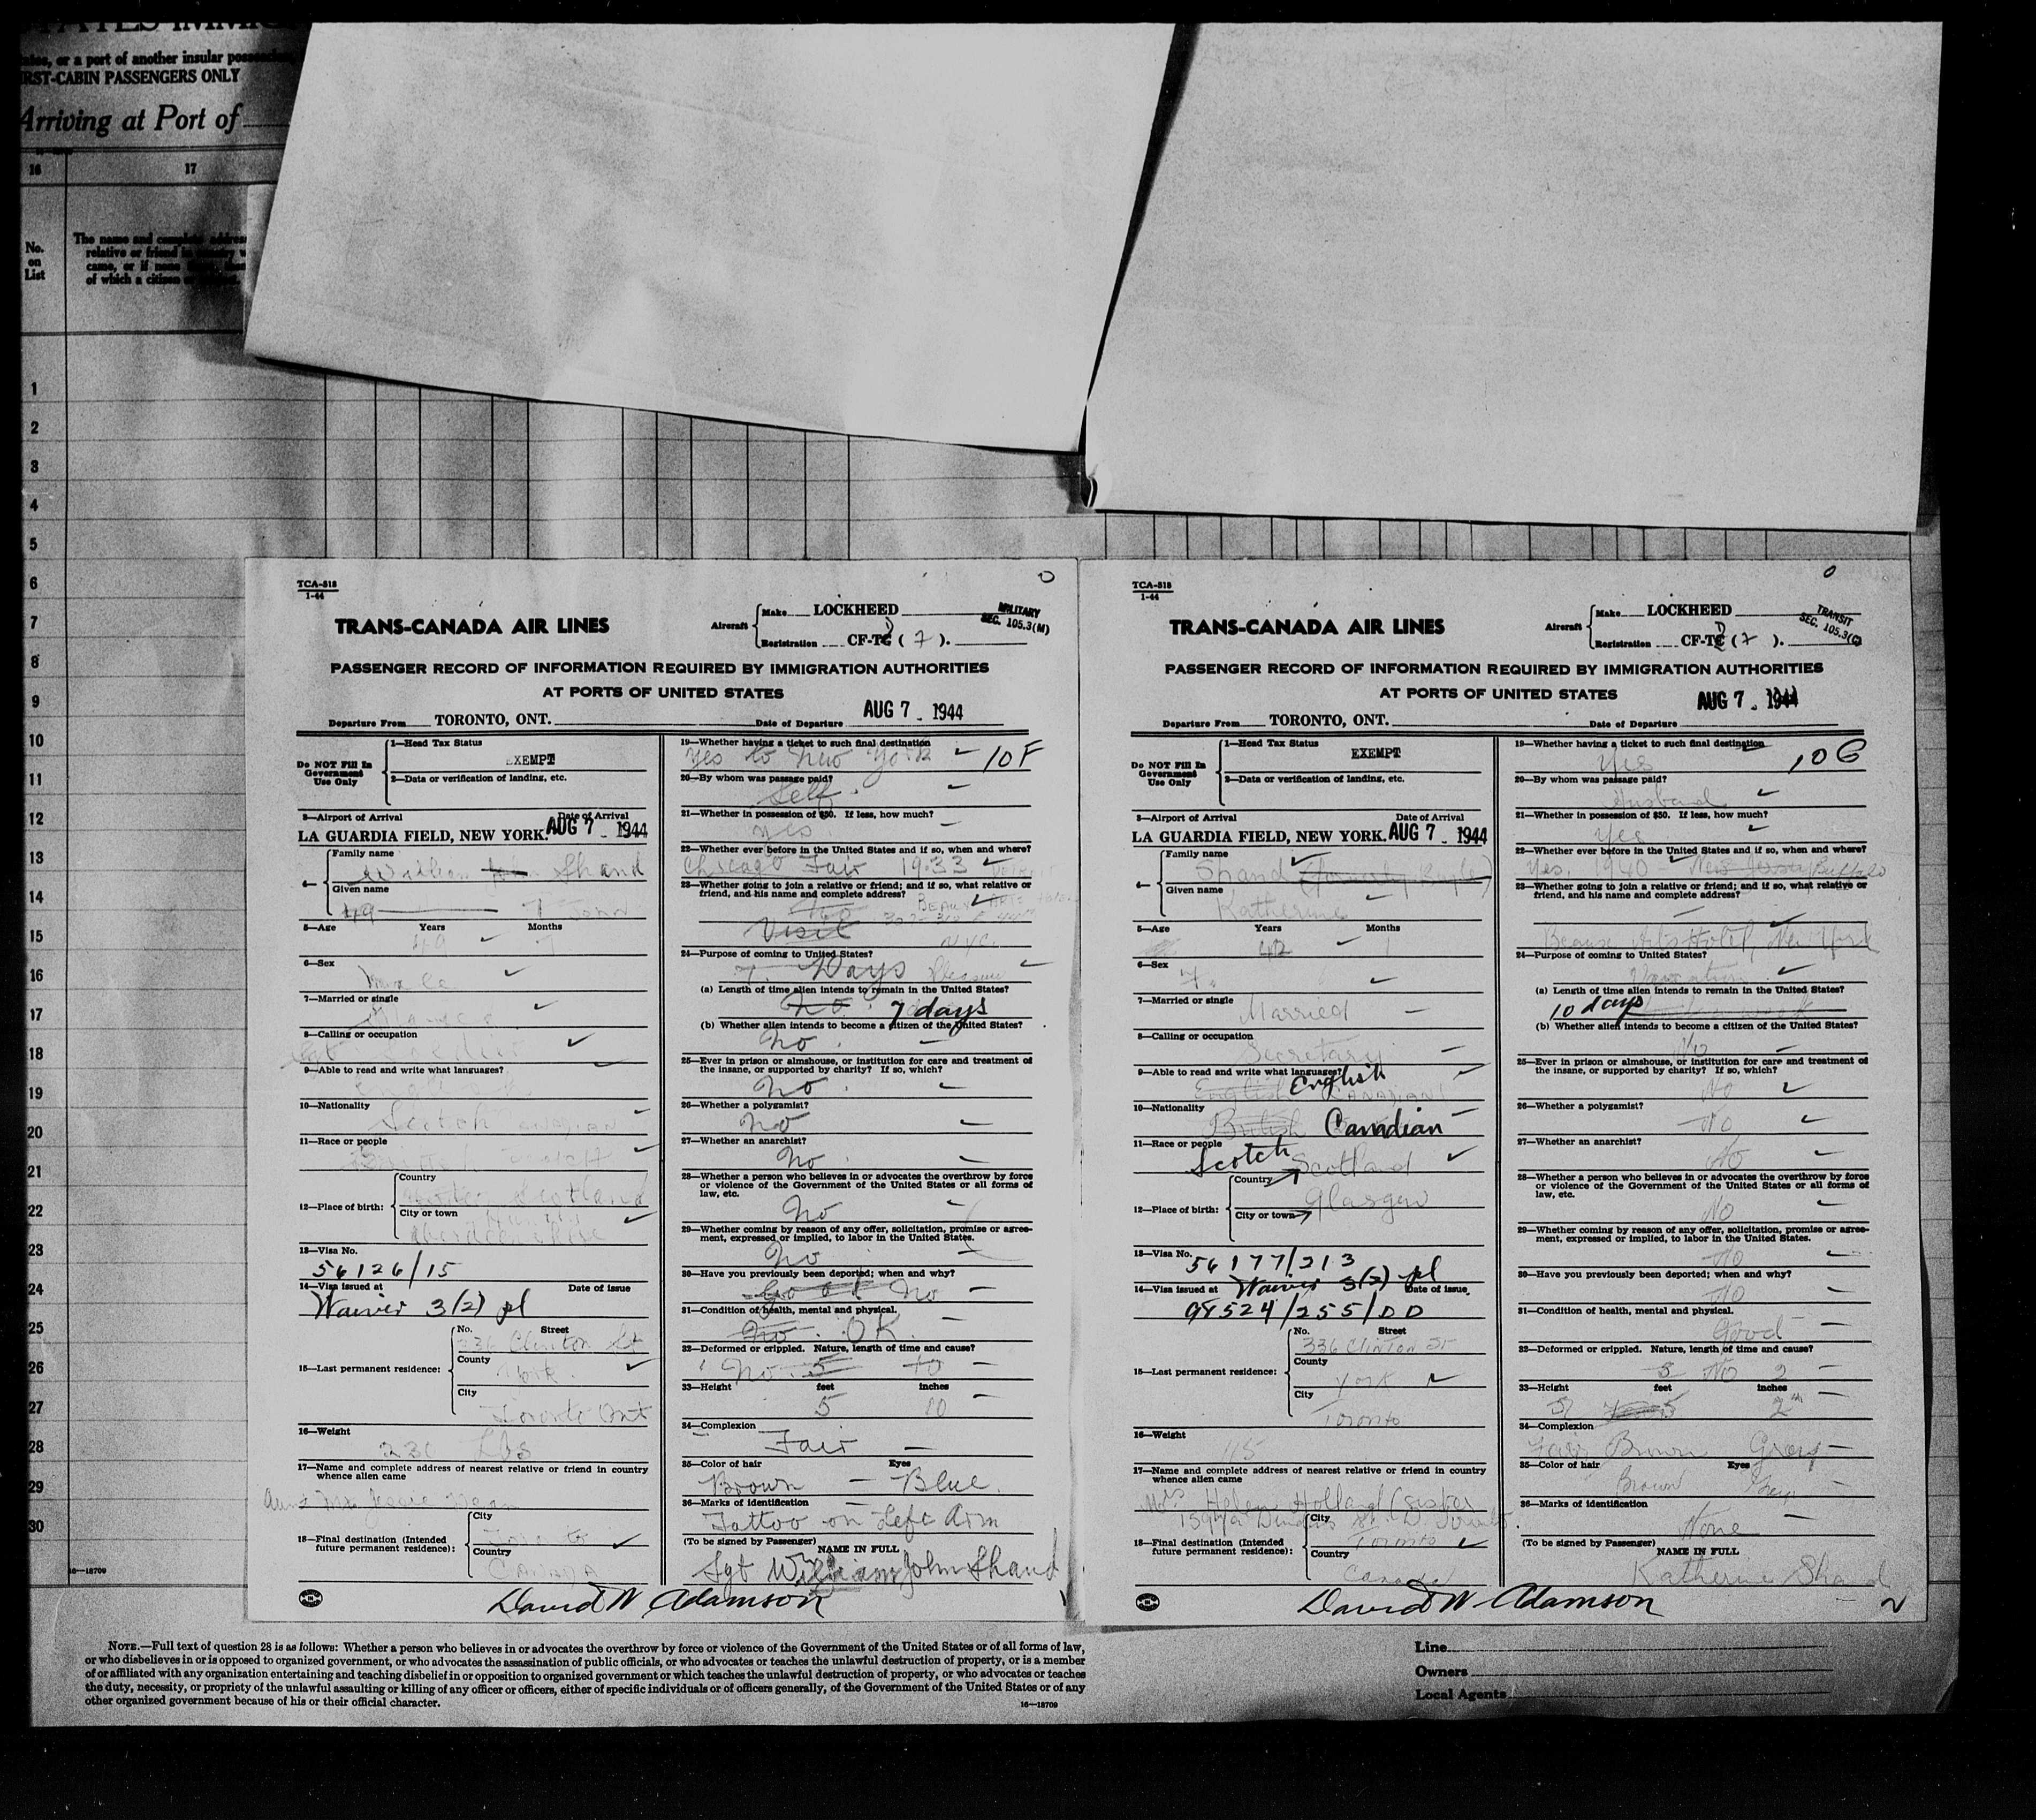 STATES IMMIG
ates, or a part of another insular
RST-CABIN PASSENGERS ONLY
Arriving at Port of
16 17
No. on List
The name and complete address
relative or friend in country
came, or if none
of which a citizen
1
2
3
4
5
6
7
8
9
10
11
12
13
14
15
16
17
18
19
20
21
22
23
24
25
26
27
28
29
30
16—18709
TCA-518
1-44
TRANS-CANADA AIR LINES
Aircraft
Make LOCKHEED
Registration CF-TC D ( 7 ).
MILITARY
SEC. 105.3(M)
PASSENGER RECORD OF INFORMATION REQUIRED BY IMMIGRATION AUTHORITIES
AT PORTS OF UNITED STATES
Departure From TORONTO, ONT. Date of Departure AUG 7 - 1944
Do NOT Fill In Government Use Only
1—Head Tax Status
EXEMPT
2—Data or verification of landing, etc.
3—Airport of Arrival Date of Arrival
LA GUARDIA FIELD, NEW YORK. AUG 7 - 1944
4—
Family name
William Shand
Given name
49 7 John
5—Age Years Months
49 7
6—Sex
Male
7—Married or single
Married
8—Calling or occupation
Sgt Soldier
9—Able to read and write what languages?
10—Nationality
Scotch CANADIAN
11—Race or people
12—Place of birth:
Country
Scotland
City or town
Aberdeenshire
13—Visa No.
56126/15
14—Visa issued at Date of issue
Waiver 3(2) pl
15—Last permanent residence:
No. Street
336 Clinton St
County
York
City
Toronto Ont
16—Weight
230 Lbs
17—Name and complete address of nearest relative or friend in country
whence alien came
Aunt Mrs Jessie
18—Final destination (Intended future permanent residence):
City
Toronto
Country
CANADA
19—Whether having a ticket to such final destination
Yes to New York 10F
20—By whom was passage paid?
Self.
21—Whether in possession of $50. If less, how much?
Yes
22—Whether ever before in the United States and if so, when and where?
Chicago Fair 1933
23—Whether going to join a relative or friend; and if so, what relative or
friend, and his name and complete address?
No BEAUX ARTS
Visit NYC.
24—Purpose of coming to United States?
7 Days Pleasure
(a) Length of time alien intends to remain in the United States?
No. 7 days
(b) Whether alien intends to become a citizen of the United States?
No
25—Ever in prison or almshouse, or institution for care and treatment of
the insane, or supported by charity? If so, which?
No
26—Whether a polygamist?
No
27—Whether an anarchist?
No
28—Whether a person who believes in or advocates the overthrow by force
or violence of the Government of the United States or all forms of
law, etc.
No
29—Whether coming by reason of any offer, solicitation, promise or agree-
ment, expressed or implied, to labor in the United States.
No
30—Have you previously been deported; when and why?
Good No
31—Condition of health, mental and physical.
No. OK.
32—Deformed or crippled. Nature, length of time and cause?
No. 5 10
33—Height feet inches
5 10
34—Complexion
Fair
35—Color of hair Eyes
Brown Blue.
36—Marks of identification
Tattoo on Left Arm
(To be signed by Passenger) NAME IN FULL
Sgt William John Shand
David W Adamson
1
TCA-518
1-44
TRANS-CANADA AIR LINES
Aircraft
Make LOCKHEED
Registration CF-TC D ( 7 ).
TRANSIT
SEC. 105.3(C)
PASSENGER RECORD OF INFORMATION REQUIRED BY IMMIGRATION AUTHORITIES
AT PORTS OF UNITED STATES
Departure From TORONTO, ONT. Date of Departure AUG 7 - 1944
Do NOT Fill In Government Use Only
1—Head Tax Status
EXEMPT
2—Data or verification of landing, etc.
3—Airport of Arrival Date of Arrival
LA GUARDIA FIELD, NEW YORK. AUG 7 - 1944
4—
Family name
Shand (formerly
Given name
Katherine
5—Age Years Months
42 1
6—Sex
F.
7—Married or single
Married
8—Calling or occupation
Secretary
9—Able to read and write what languages?
English English
10—Nationality
British Canadian CANADIAN
11—Race or people
Scotch
12—Place of birth:
Country Scotland
City or town Glasgow
13—Visa No.
56177/213
14—Visa issued at Waiver 3(2) pl Date of issue
98524/255/DD
15—Last permanent residence:
No. Street
336 CLINTON ST
County
York
City
Toronto
16—Weight
17—Name and complete address of nearest relative or friend in country
whence alien came
Mrs Helen Holland (sister
Dundas St. W. Toronto
18—Final destination (Intended future permanent residence):
City
Toronto
Country
Canada
19—Whether having a ticket to such final destination
Yes 10G
20—By whom was passage paid?
Husband
21—Whether in possession of $50. If less, how much?
Yes
22—Whether ever before in the United States and if so, when and where?
Yes. 1940 New Jersey Buffalo
23—Whether going to join a relative or friend; and if so, what relative or
friend, and his name and complete address?
Beaux Arts Hotel, New York
24—Purpose of coming to United States?
Vacation
(a) Length of time alien intends to remain in the United States?
10 days
(b) Whether alien intends to become a citizen of the United States?
No
25—Ever in prison or almshouse, or institution for care and treatment of
the insane, or supported by charity? If so, which?
No
26—Whether a polygamist?
No
27—Whether an anarchist?
No
28—Whether a person who believes in or advocates the overthrow by force
or violence of the Government of the United States or all forms of
law, etc.
No
29—Whether coming by reason of any offer, solicitation, promise or agree-
ment, expressed or implied, to labor in the United States.
No
30—Have you previously been deported; when and why?
No
31—Condition of health, mental and physical.
Good
32—Deformed or crippled. Nature, length of time and cause?
No 2
33—Height feet inches
5 2
34—Complexion
Fair Brown Grey
35—Color of hair Eyes
Brown Grey
36—Marks of identification
None
(To be signed by Passenger) NAME IN FULL
Katherine Shand
David W Adamson
2
NOTE.—Full text of question 28 is as follows: Whether a person who believes in or advocates the overthrow by force or violence of the Government of the United States or of all forms of law,
or who disbelieves in or is opposed to organized government, or who advocates the assassination of public officials, or who advocates or teaches the unlawful destruction of property, or is a member
of or affiliated with any organization entertaining and teaching disbelief in or opposition to organized government or which teaches the unlawful destruction of property, or who advocates or teaches
the duty, necessity, or propriety of the unlawful assaulting or killing of any officer or officers, either of specific individuals or of officers generally, of the Government of the United States or of any
other organized government because of his or their official character.
16—18709
Line
Owners
Local Agents